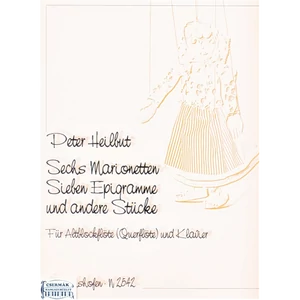 Peter Heilbut
Sechs Marionetten
Sieben Epigramme
und andere Stücke
Für Altblockflöte (Querflöte) und Klavier
N 2542